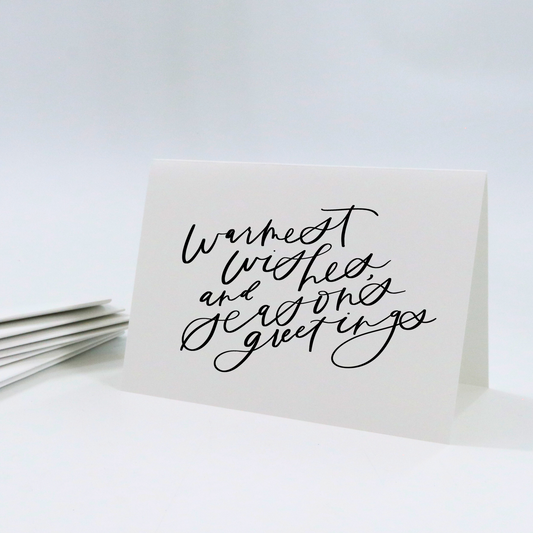 warmest
wishes,
and
seasons
greetings